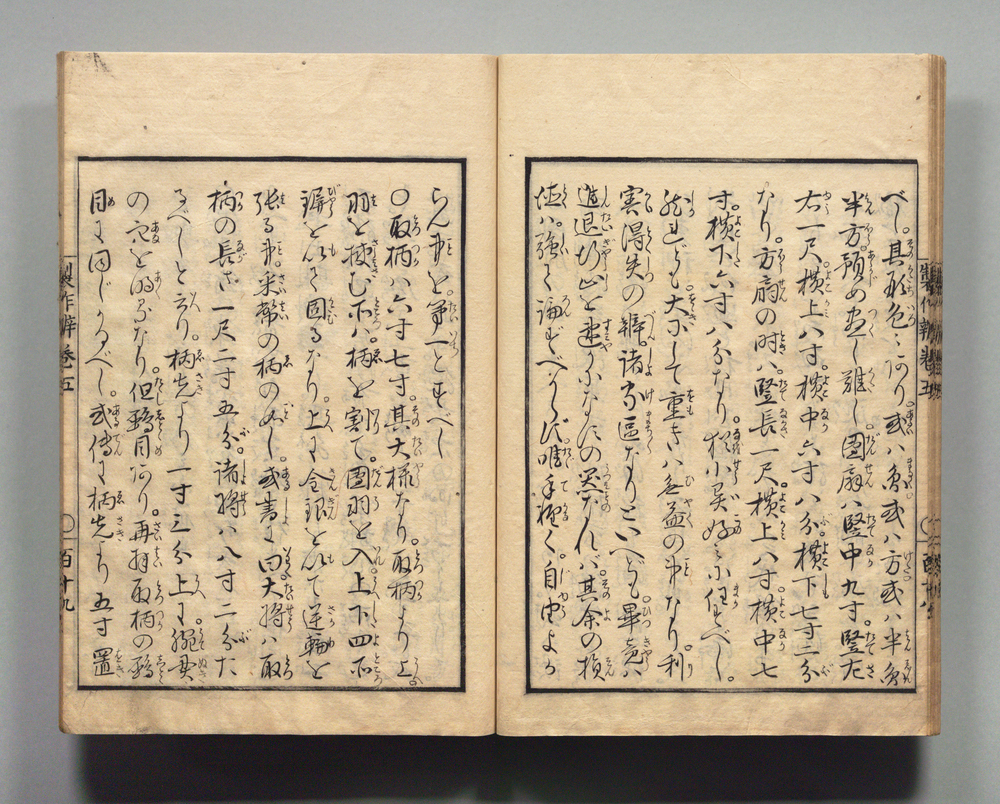 べし。其形色〻あり。或ハ角或ハ方或ハ半角
半方。預め尽し難し。團扇ハ竪中九寸。竪左
右一尺横上八寸。横中六寸八分。横下七寸二分
なり。方扇の時ハ竪長一尺横上八寸横中七
寸。横下六寸八分なり。猶小異好ミに任べし。
然ども大にして重きハ無益の事なり。利
害得失の辨。諸家區なりといへども。畢竟ハ
進退行止を速かになすの器なれバ。其余の損
徳ハ。強て論ずべからず。唯手軽く。自由よか
らん事を。第一とすべし
〇取柄ハ六寸七寸。其大様なり。取柄より上。
羽を挟む所ハ。柄を割て。團羽を入。上下四所
鋲を以て固るなり。上は金銀を以て逆輪を
張る事采幣の柄の如し。或書に曰大将ハ取
柄の長さ一尺二寸五分。諸将ハ八寸二分た
るべしと云り。柄先より一寸三分上に。腕貫
の穴を明るなり。但鵐目あり。再拝取柄の鵐
目に同じかるべし。或傳に柄先より五寸置
製作辨卷五
〇百十九
製作辨卷五